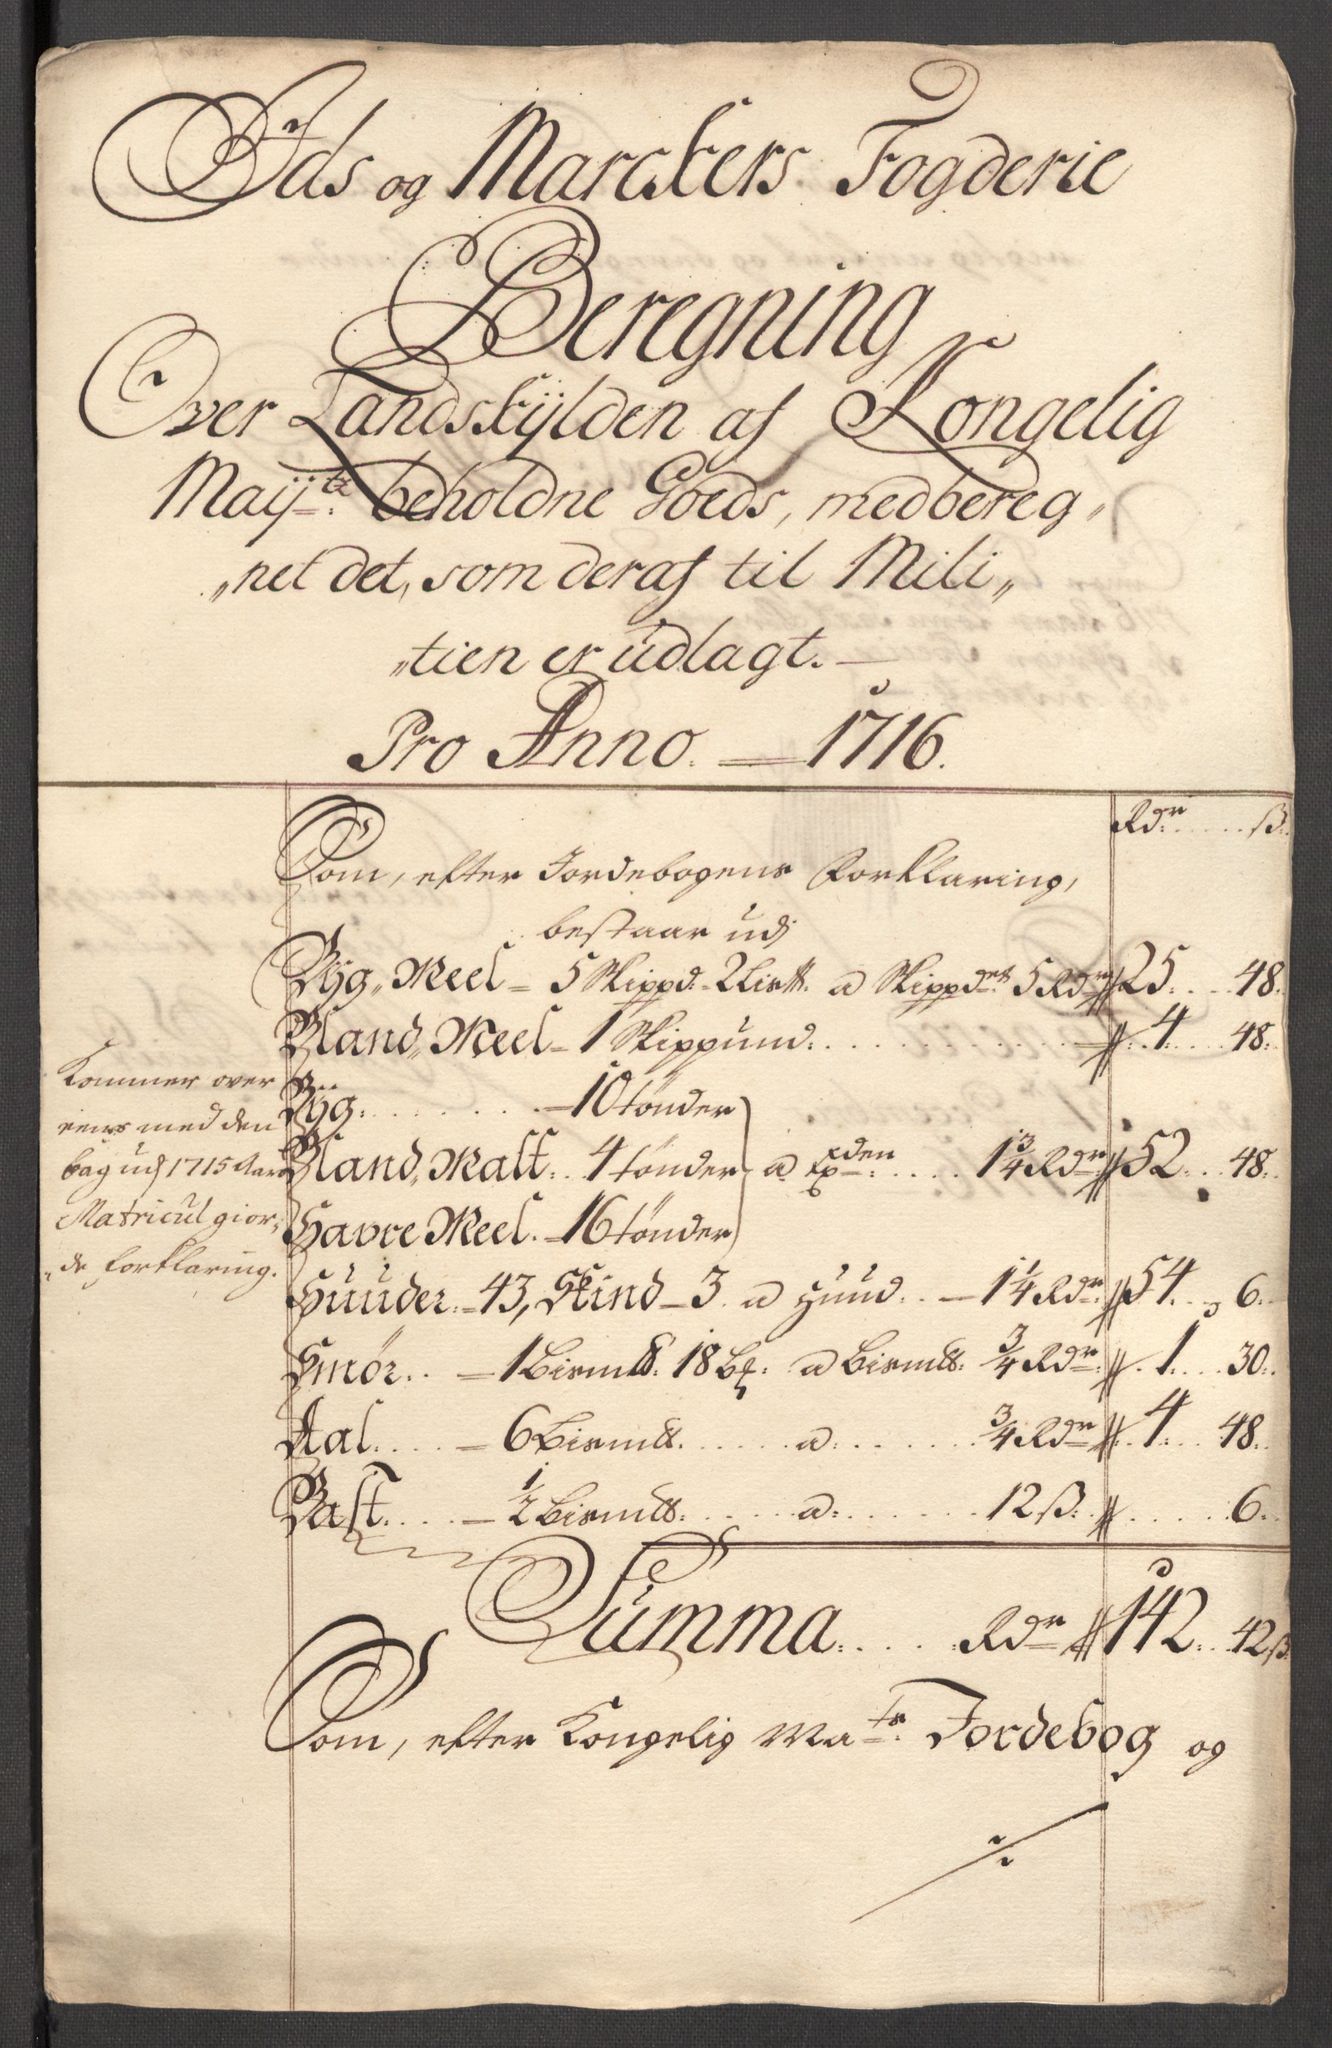 Ids og Marckers Fogderie
Beregning
Over Landskÿlden af Kongelig
Maÿtz beholdne Goeds, medbereg„
„net det, som deraf til Mili„
„tien er udlagt.
Pro Anno 1716.
Rdr ß.
Som, efter Jordebogens Forklaring,
bestaar udj
Bÿg„ Meel 5 Skippd. 2 Lis℔. a Skippdet 5 Rdr 25 48.
Bland„ Meel 1 Skippund 4 48.
Bÿg 10 tønder
Bland„ Malt 4 tønder a den 1¾ Rdr 52 48.
Havre Meel 16 tønder
Huuder 43, Skind 3 a Huud 1¼ Rdr 54 6.
Smør 1 Bism℔. 18 a Bism℔. ¾ Rdr 1 30.
Aal 6 Bism℔. a ¾ Rdr 4 48.
Bast ½ Bism℔. a 12 ß. 6.
Kommer over
eens med den
bag udj 1715 Aars
Matricul gior„
„de forklaring.
Summa Rdr 142 42 ß
Som, efter Kongelig Mats Jordebog og